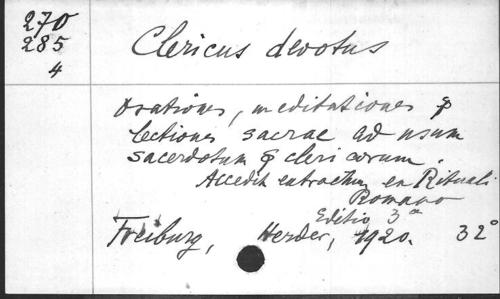 270
285
4
Clericus devotus
Orationes, meditationes &
lectiones sacrae ad usum
sacerdotum & clericorum.
Accedit extractum ex Rituali
Romano
Editio 3a
Freiburg, Herder, 1920. 32°